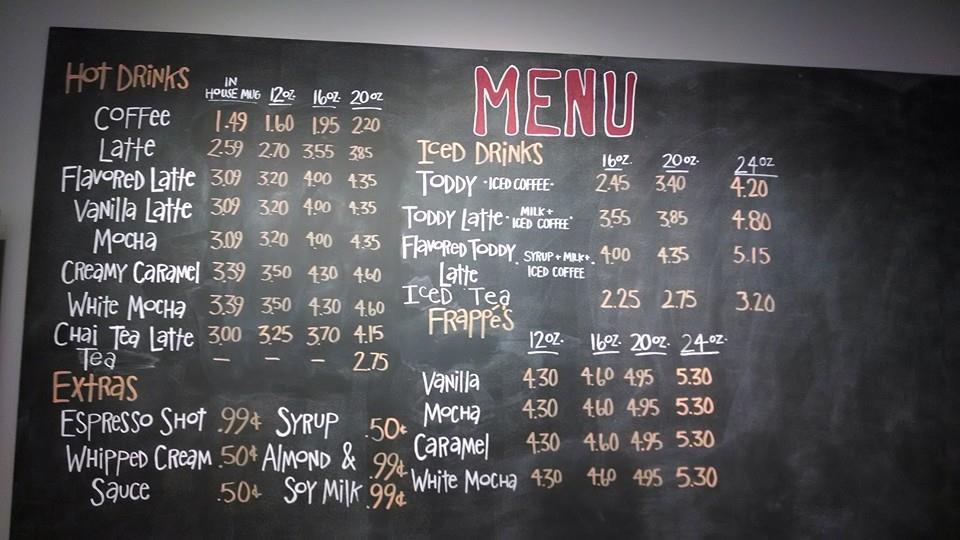 MENU
HOT DRINKS IN HOUSE MUG 12oz. 16oz. 20oz
COFFEE 1.49 1.60 1.95 2.20
LATTE 2.59 2.70 3.55 3.85
FLAVORED LATTE 3.09 3.20 4.00 4.35
VANILLA LATTE 3.09 3.20 4.00 4.35
MOCHA 3.09 3.20 4.00 4.35
CREAMY CARAMEL 3.39 3.50 4.30 4.60
WHITE MOCHA 3.39 3.50 4.30 4.60
CHAI TEA LATTE 3.00 3.25 3.70 4.15
TEA — — — 2.75
EXTRAS
ESPRESSO SHOT .99¢ SYRUP .50¢
WHIPPED CREAM .50¢ ALMOND & .99¢
SAUCE .50¢ SOY MILK .99¢
ICED DRINKS 16oz. 20oz. 24oz
TODDY -ICED COFFEE- 2.45 3.40 4.20
TODDY LATTE - MILK + ICED COFFEE - 3.55 3.85 4.80
FLAVORED TODDY LATTE - SYRUP + MILK + ICED COFFEE - 4.00 4.35 5.15
ICED TEA 2.25 2.75 3.20
FRAPPÉ'S
12oz. 16oz. 20oz. 24oz.
VANILLA 4.30 4.60 4.95 5.30
MOCHA 4.30 4.60 4.95 5.30
CARAMEL 4.30 4.60 4.95 5.30
WHITE MOCHA 4.30 4.60 4.95 5.30